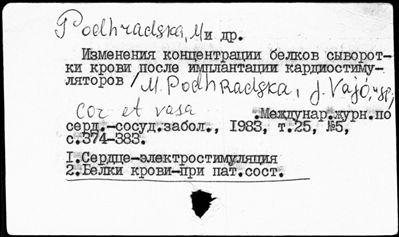 Podhradska, М и др.
Изменения концентрации белков сыворот-
ки крови после имплантации кардиостиму-
ляторов / M. Podhradska, J. Vajó,
cor et vasa .Междунар.журн.по
серд.-сосуд.забол., 1983, т.25, №5,
с.374-383.
1.Сердце-электростимуляция
2.Белки крови-при пат.сост.